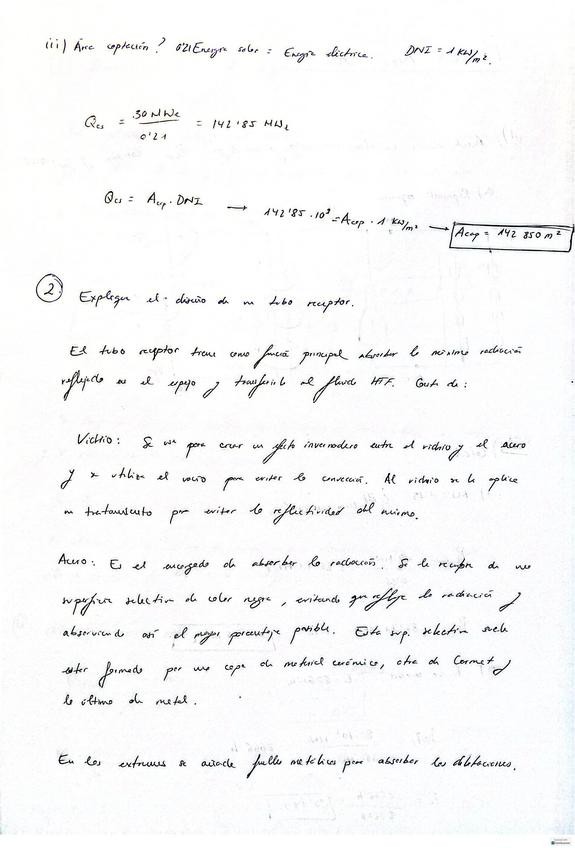 iii) Área captación? 0'21 Energía solar = Energía eléctrica. DNI = 1 KW/m².
Qcs = 30 MWe / 0'21 = 142'85 MWt
Qcs = Acap · DNI → 142'85 · 10³ = Acap · 1 KW/m² → Acap = 142 850 m²
2 Explique el diseño de un tubo receptor.
El tubo receptor tiene como función principal absorber la máxima radiación
reflejada en el espejo y transferirla al fluido HTF. Consta de:
Vidrio: Se usa para crear un efecto invernadero entre el vidrio y el acero
y se utiliza el vacío para evitar la convección. Al vidrio se le aplica
un tratamiento por evitar la reflectividad del mismo.
Acero: Es el encargado de absorber la radiación. Se le recubre de una
superficie selectiva de color negra, evitando que refleje la radiación y
absorviendo así el mayor porcentaje posible. Esta sup. selectiva suele
estar formada por una capa de material cerámico, otra de Cermet y
la última de metal.
En los extremos se añade fuelles metálicos para absorber las dilataciones.